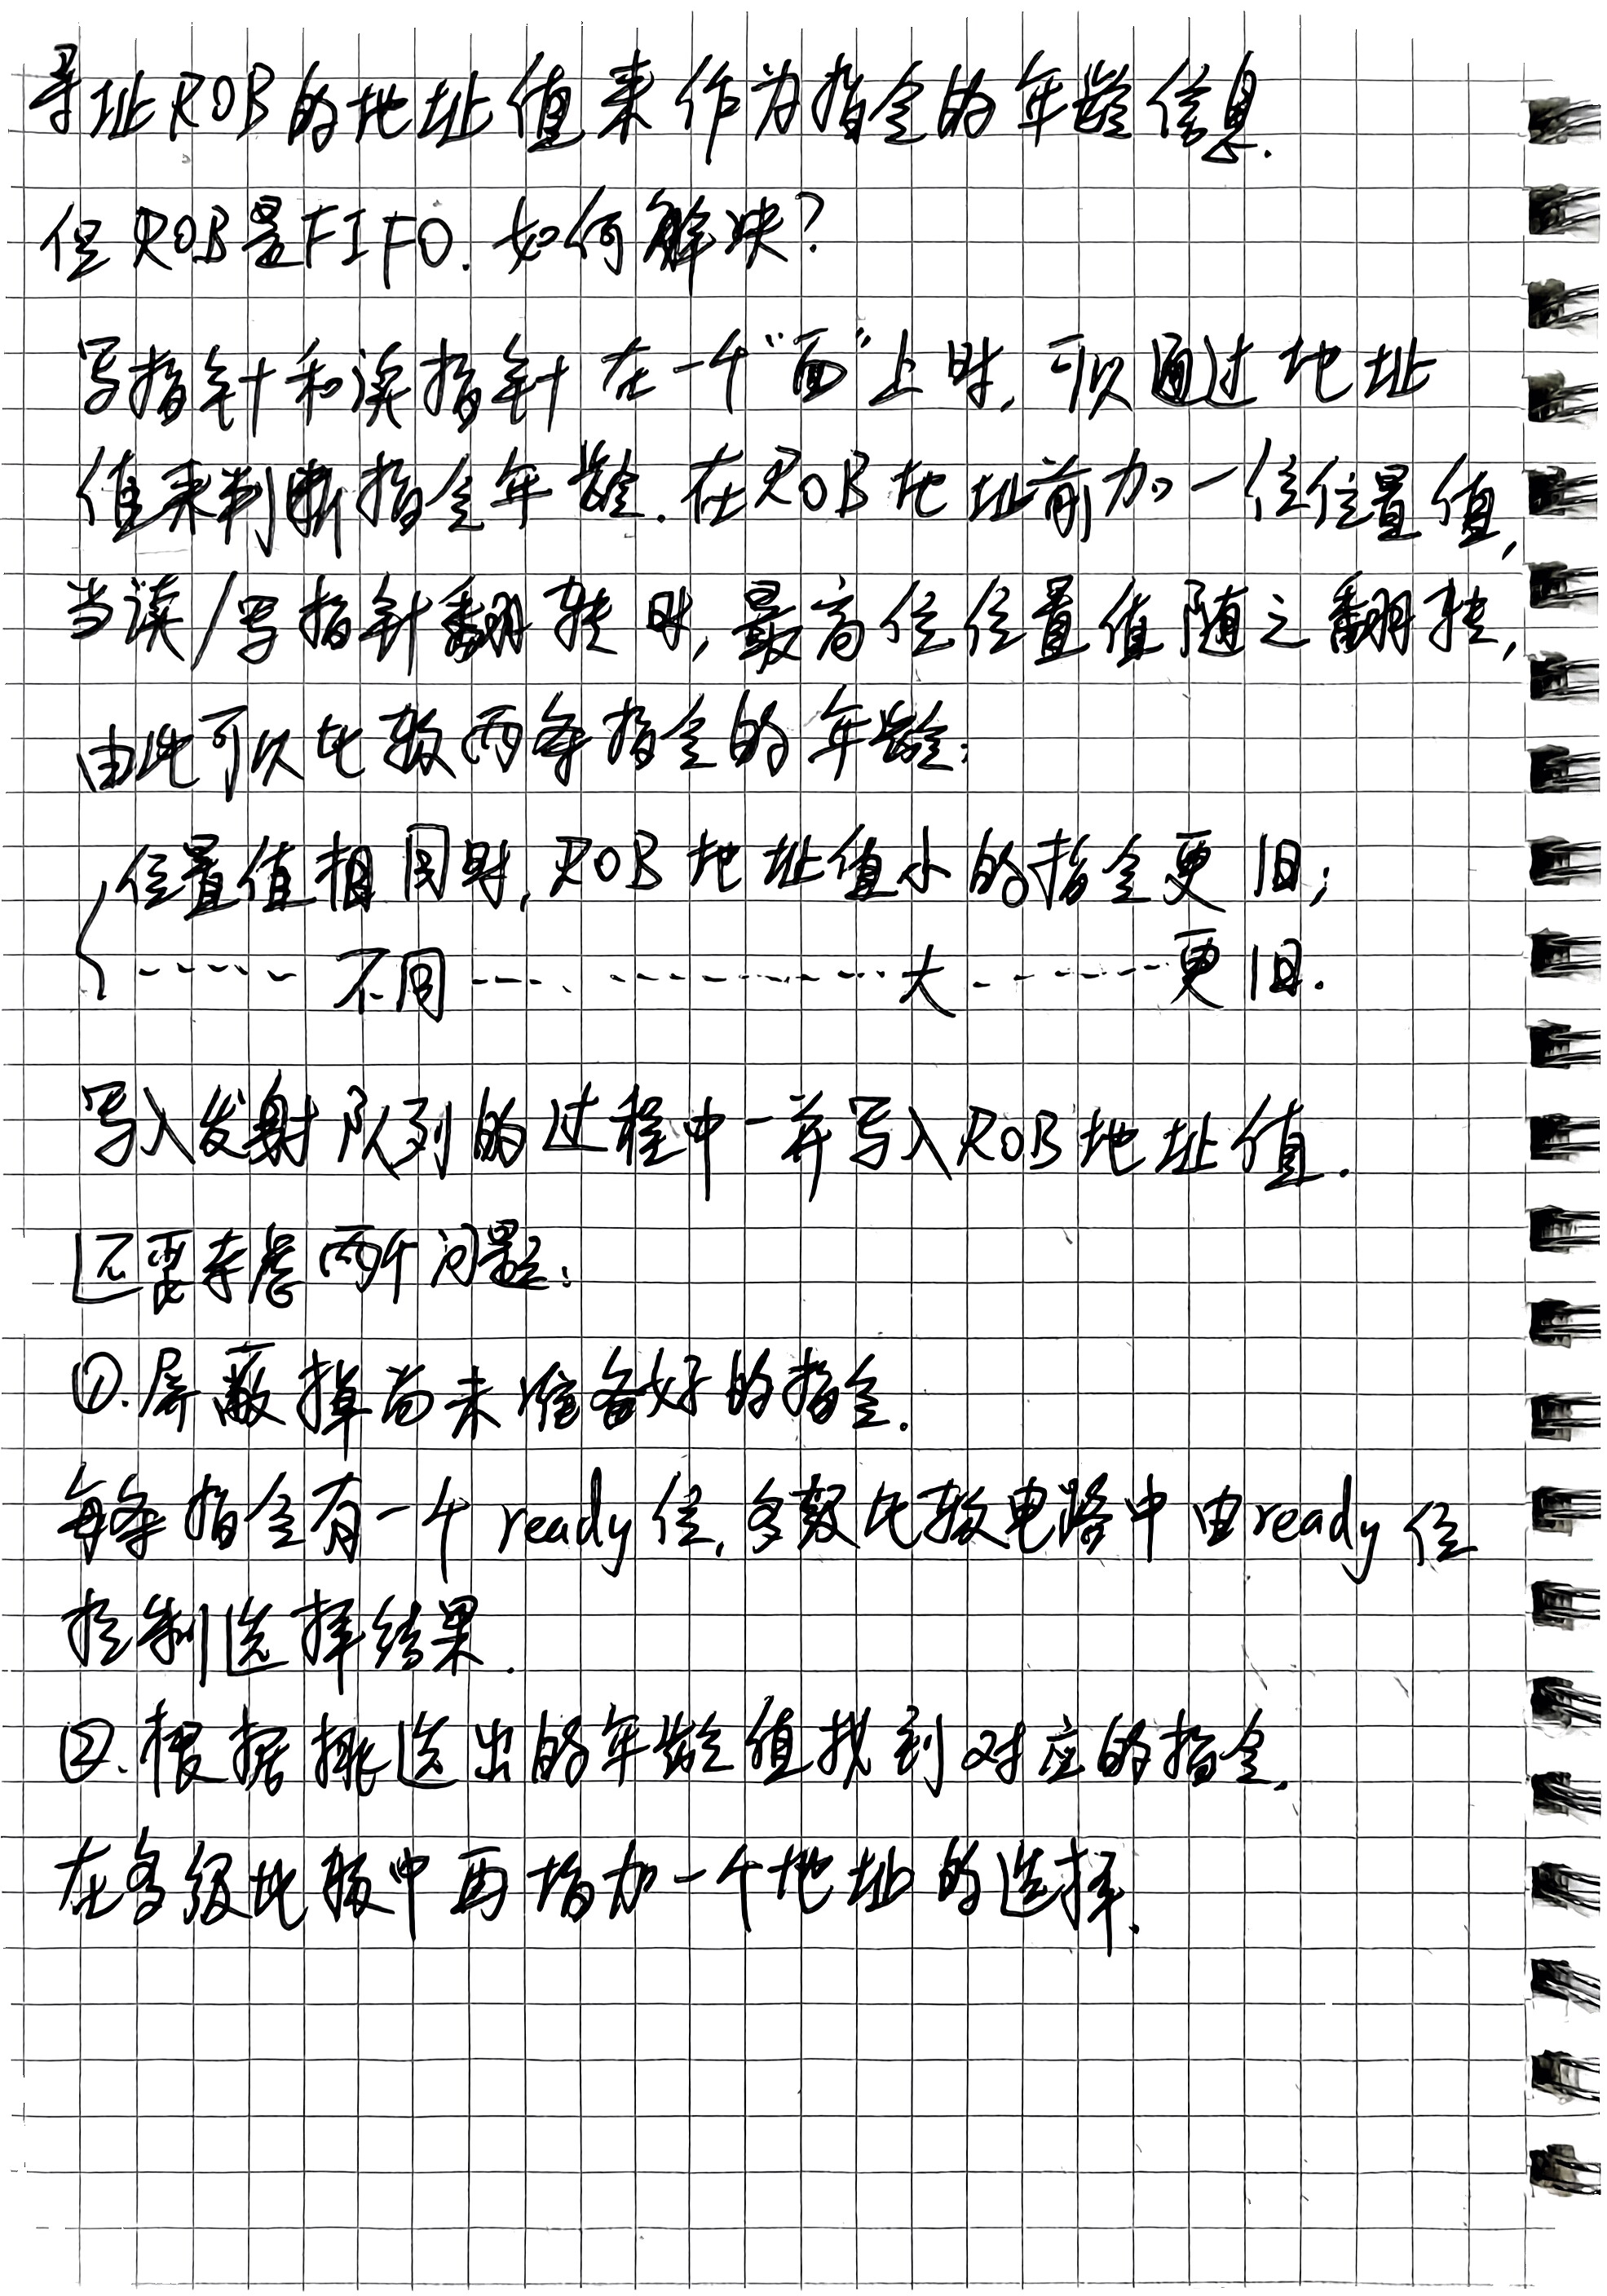 寻址ROB的地址值来作为指令的年龄信息.
但ROB是FIFO.如何解决?
写指针和读指针在一个"面"上时,可以通过地址
值来判断指令年龄.在ROB地址前加一位位置值,
当读/写指针翻转时,最高位位置值随之翻转,
由此可以比较两条指令的年龄:
位置值相同时,ROB地址值小的指令更旧;
----- 不同 ------------ 大 ------ 更旧.
写入发射队列的过程中一并写入ROB地址值.
还要考虑两个问题:
①.屏蔽掉尚未准备好的指令.
每条指令有一个ready位,多级比较电路中由ready位
控制选择结果.
②.根据挑选出的年龄值找到对应的指令.
在多级比较中再增加一个地址的选择.